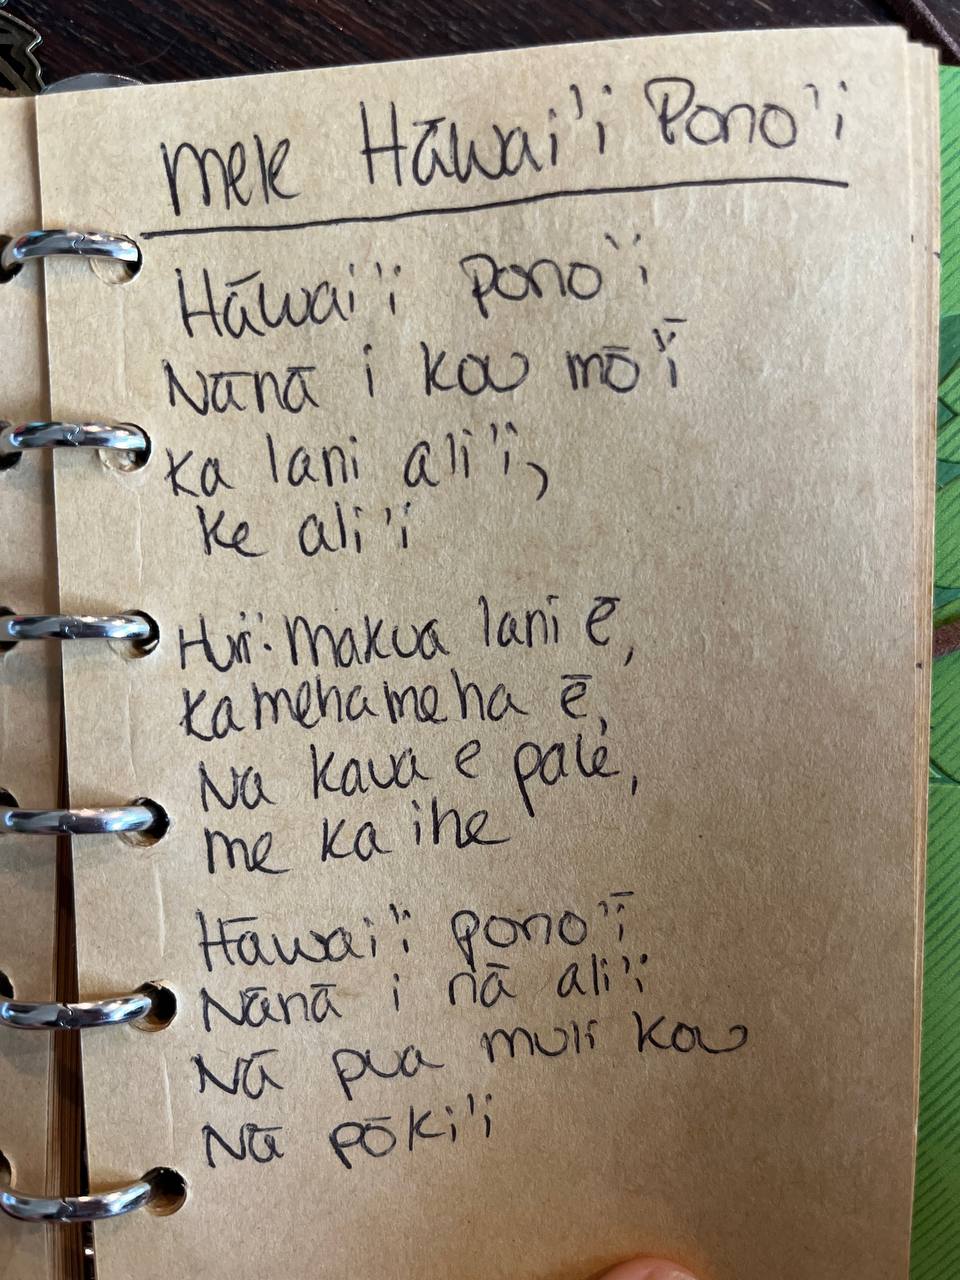 mele Hāwai'i Pono'i
Hāwai'i pono'i
Nānā i kou mō'ī
Ka lani ali'i,
Ke ali'i
Hui: Makua lani ē,
Kamehameha ē,
Na kaua e pale,
me ka ihe
Hāwai'i pono'ī
Nānā i nā ali'i
Nā pua muli kou
Nā pōki'i